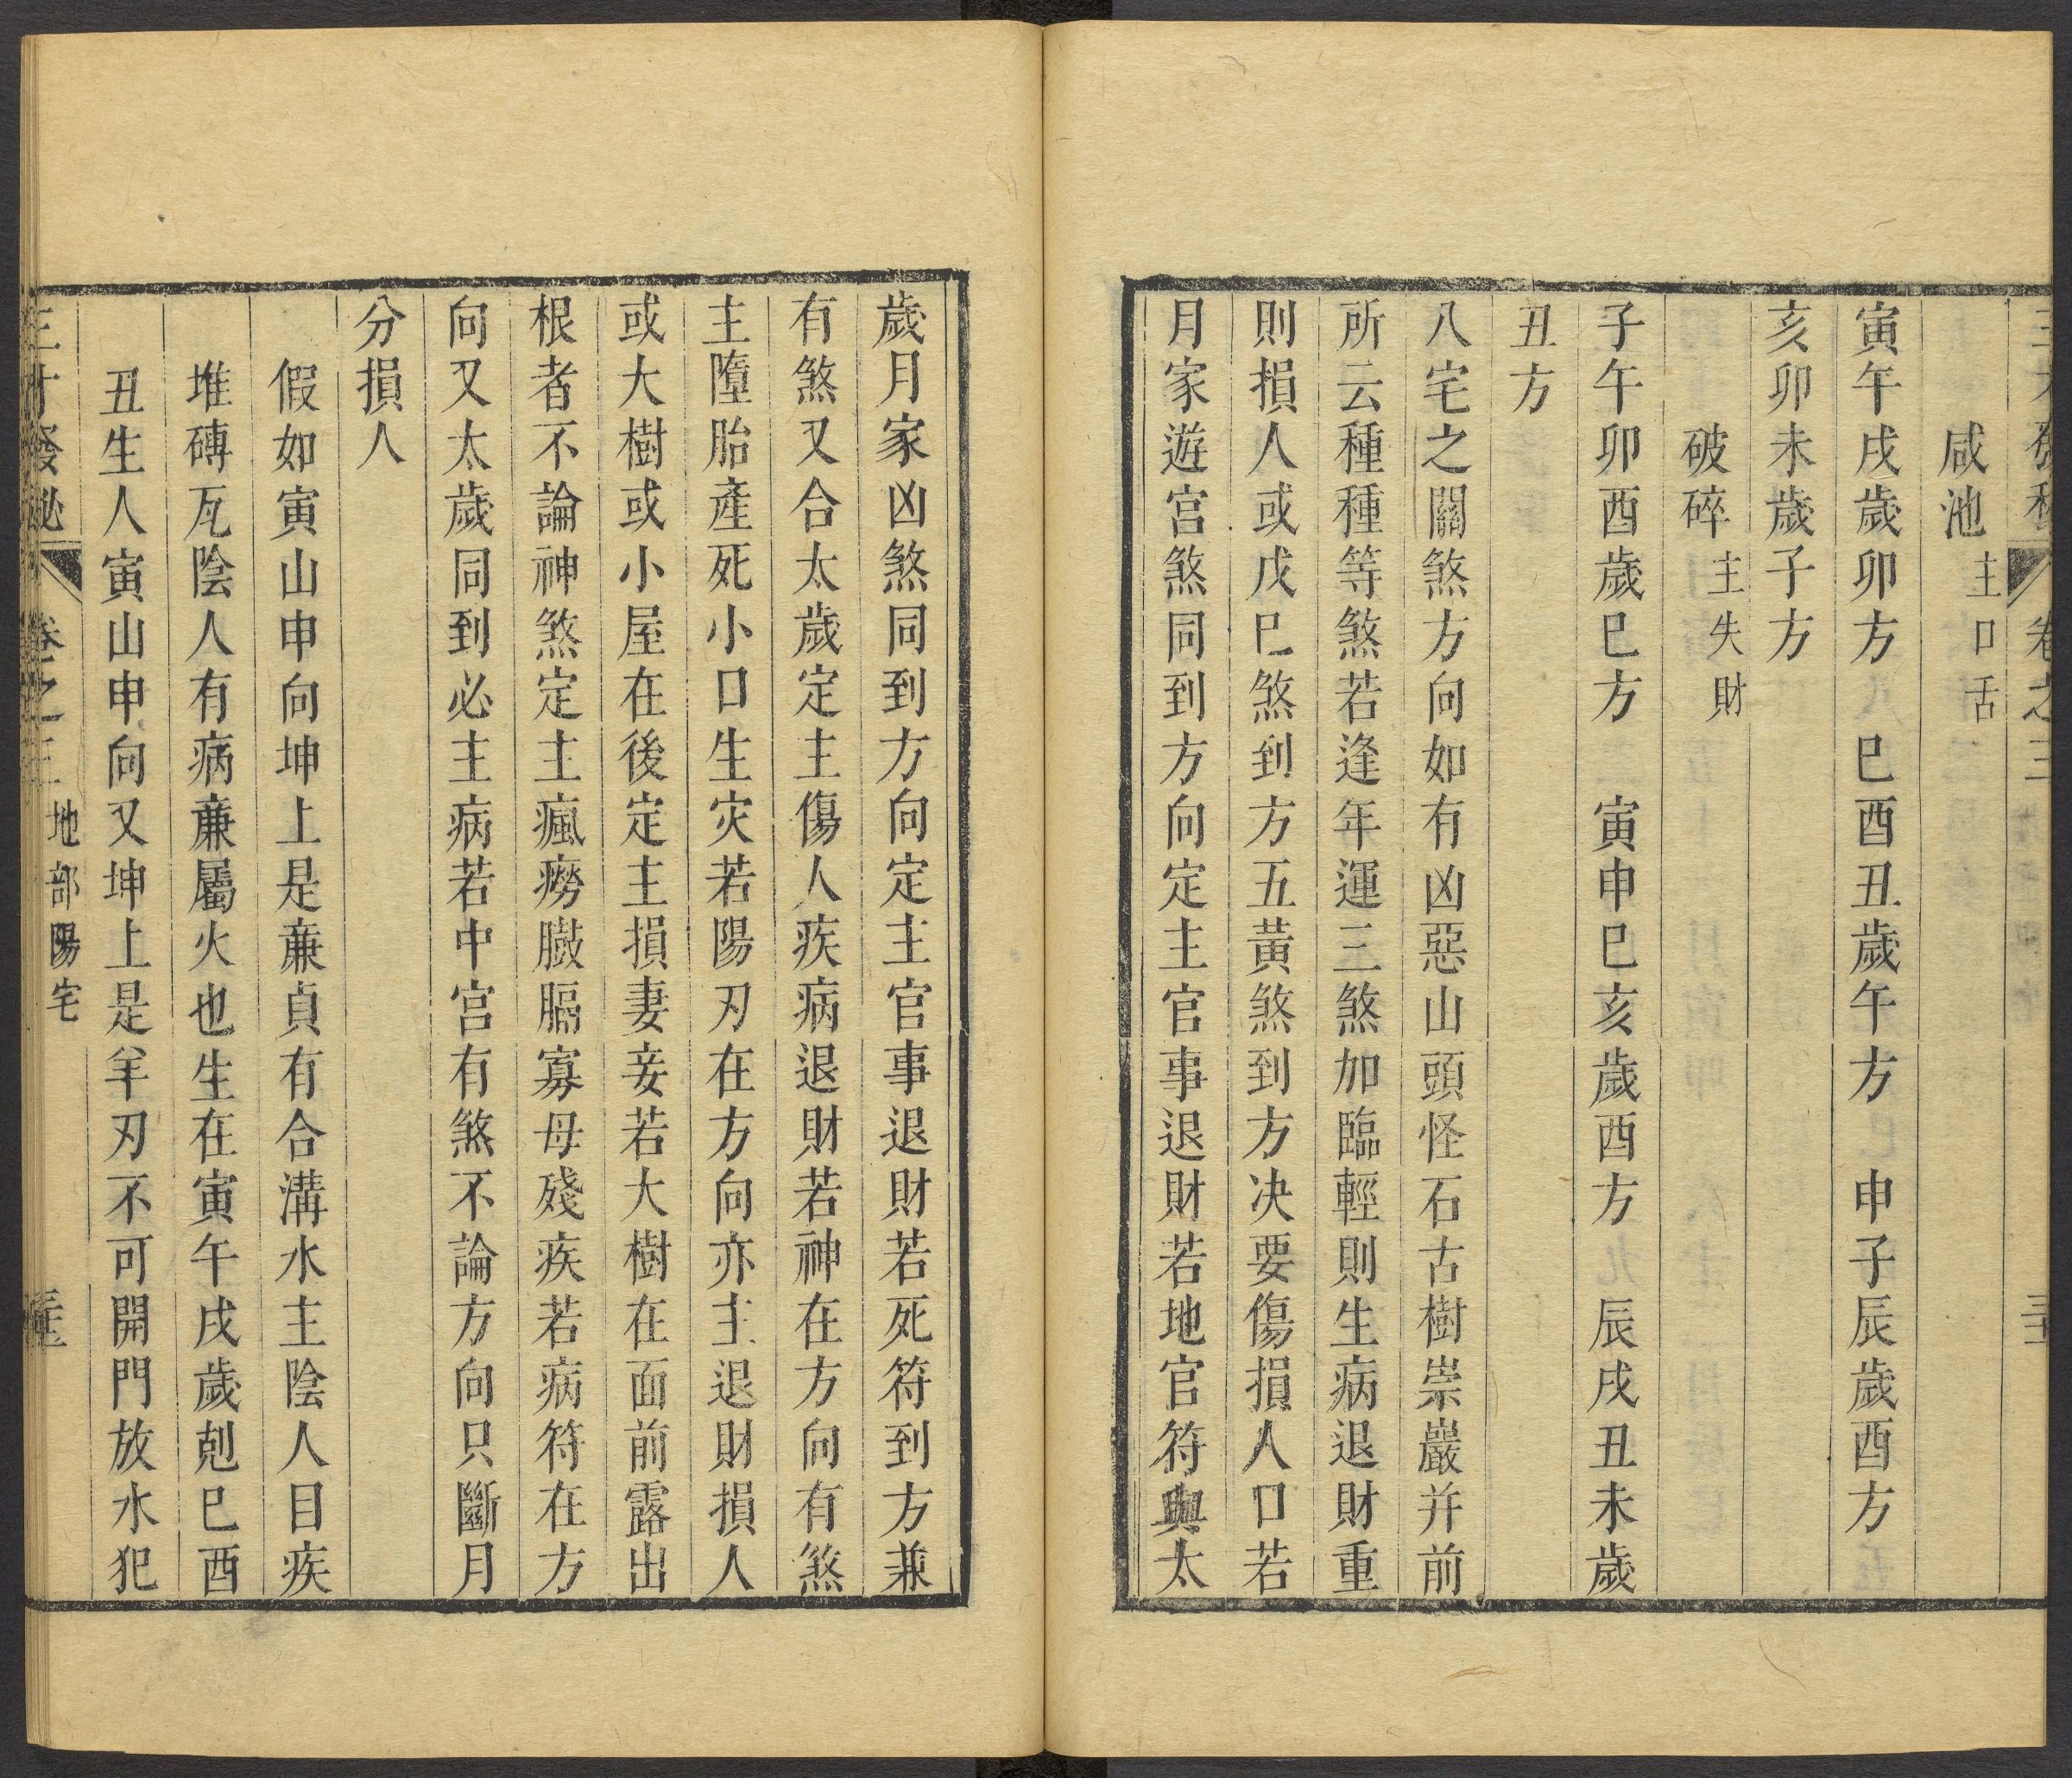 咸池主口舌
寅午戌歲卯方　巳酉丑歲午方　申子辰歲酉方
亥卯未歲子方
破碎主失財
子午卯酉歲巳方　寅申巳亥歲酉方　辰戌丑未歲
丑方
八宅之關煞方向如有凶惡山頭怪石古樹崇巖并前
所云種種等煞若逢年運三煞加臨輕則生病退財重
則損人或戊巳煞到方五黃煞到方决要傷損人口若
月家遊宮煞同到方向定主官事退財若地官符與太
歲月家凶煞同到方向定主官事退財若死符到方兼
有煞又合太歲定主傷人疾病退財若神在方向有煞
主墮胎產死小口生灾若陽刃在方向亦主退財損人
或大樹或小屋在後定主損妻妾若大樹在面前露出
根者不論神煞定主瘋癆臌膈寡母殘疾若病符在方
向又太歲同到必主病若中宮有煞不論方向只斷月
分損人
假如寅山申向坤上是亷貞有合溝水主陰人目疾
堆磚瓦陰人有病亷屬火也生在寅午戌歲剋巳酉
丑生人寅山申向又坤上是羊刃不可開門放水犯
三才發秘　卷之三　地部陽宅